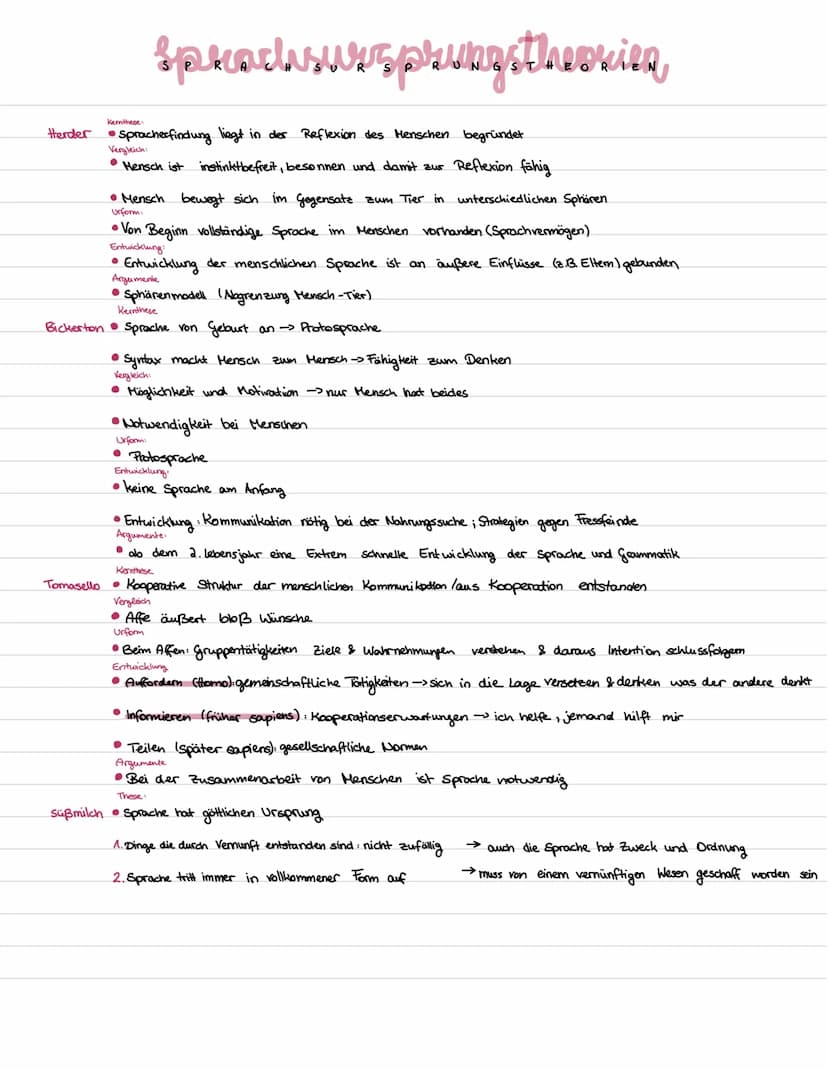 Sprachsursprungstheorien
SPRACHSURSPRUNGSTHEORIEN
Kernthese:
Herder • Spracherfindung liegt in der Reflexion des Menschen begründet
Vergleich:
• Mensch ist instinktbefreit, besonnen und damit zur Reflexion fähig
• Mensch bewegt sich im Gegensatz zum Tier in unterschiedlichen Sphären
Urform:
• Von Beginn vollständige Sprache im Menschen vorhanden (Sprachvermögen)
Entwicklung:
• Entwicklung der menschlichen Sprache ist an äußere Einflüsse (z.B. Eltern) gebunden
Argumente
• Sphärenmodell (Abgrenzung Mensch-Tier)
Kernthese
Bickerton • Sprache von Geburt an → Protosprache
• Syntax macht Mensch zum Mensch → Fähigkeit zum Denken
Vergleich:
• Möglichkeit und Motivation → nur Mensch hat beides
• Notwendigkeit bei Menschen
Urform:
• Protosprache
Entwicklung:
• keine Sprache am Anfang
• Entwicklung: Kommunikation nötig bei der Nahrungssuche; Strategien gegen Fressfeinde
Argumente:
• ab dem 2. Lebensjahr eine Extrem schnelle Entwicklung der Sprache und Grammatik
Kernthese
Tomasello • Kooperative Struktur der menschlichen Kommunikation / aus Kooperation entstanden
Vergleich
• Affe äußert bloß Wünsche
Urform
• Beim Affen: Gruppentätigkeiten Ziele & Wahrnehmungen verstehen & daraus Intention schlussfolgern
Entwicklung
• Auffordern (Homo): gemeinschaftliche Tätigkeiten → sich in die Lage versetzen & denken was der andere denkt
• Informieren (früher sapiens): Kooperationserwartungen → ich helfe, jemand hilft mir
• Teilen (später sapiens): gesellschaftliche Normen
Argumente
• Bei der Zusammenarbeit von Menschen ist Sprache notwendig
These:
Süßmilch • Sprache hat göttlichen Ursprung
1. Dinge die durch Vernunft entstanden sind: nicht zufällig → auch die Sprache hat Zweck und Ordnung
2. Sprache tritt immer in vollkommener Form auf → muss von einem vernünftigen Wesen geschaff worden sein